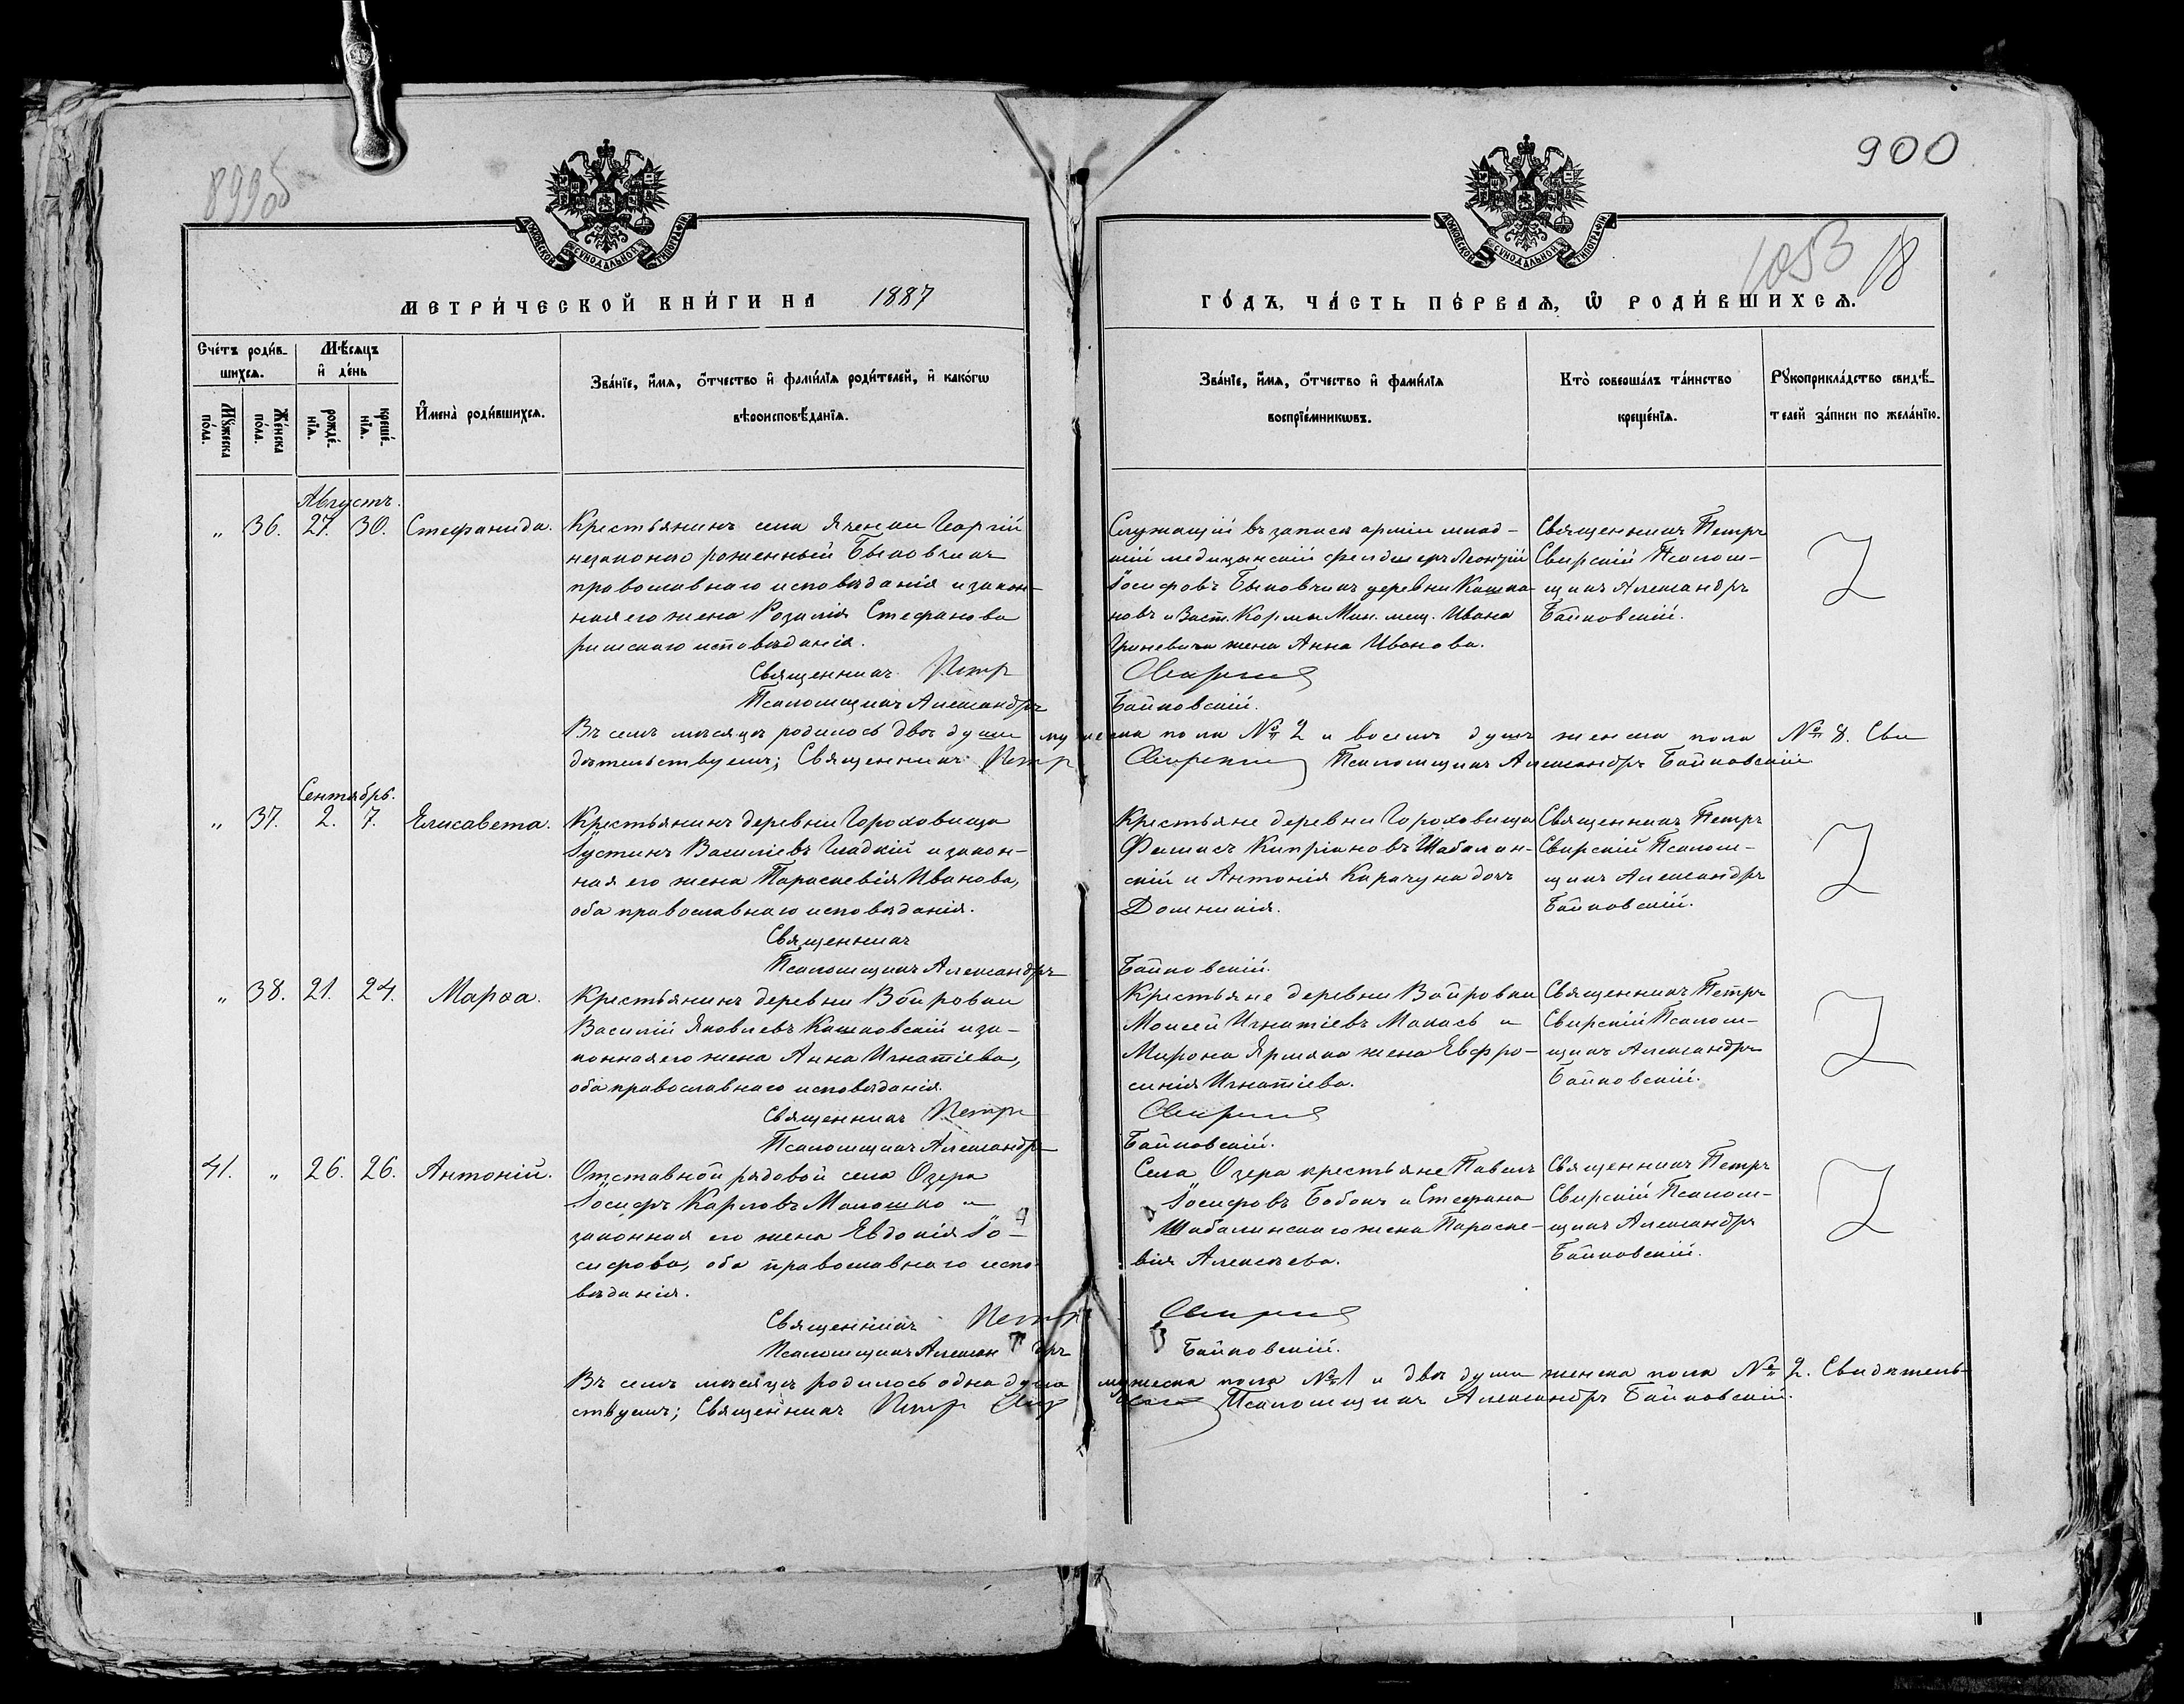 899об
900
МОСКОВСКОЙ СУНОДАЛЬНОЙ ТИПОГРАФІИ
МОСКОВСКОЙ СУНОДАЛЬНОЙ ТИПОГРАФІИ
1053 18
МЕТРИ́ЧЕСКОЙ КНИ́ГИ НА 1887
ГО́ДЪ, ЧА́СТЬ ПЕ́РВАЯ, Ѡ҆ РОДИ́ВШИХСѦ.
Сче́тъ роди́в-
шихсѧ.
Мѣ́сѧцъ
и҆ де́нь
Мꙋ́жеска
по́ла.
Же́нска
по́ла.
рожде́-
нїѧ.
креще́-
нїѧ.
И҆мена̀ роди́вшихсѧ.
Зва́нїе, и҆́мѧ, ѻ҆́тчество и҆ фами́лїѧ роди́телей, и҆ како́гѡ
вѣроисповѣ́данїѧ.
Зва́нїе, и҆́мѧ, ѻ҆́тчество и҆ фами́лїѧ
воспрїе́мникѡвъ.
Кто̀ соверша́лъ та́инство
креще́нїѧ.
Рꙋкоприкла́дство свидѣ́-
телей за́писи по жела́нїю.
Августъ.
„ 36. 27. 30. Стефанида.
Крестьянинъ села Ячонки Георгій
незаконно рожденный Быковчикъ
православнаго исповѣданія и закон-
ная его жена Розалія Стефанова
римскаго исповѣданія.
Священникъ Петръ
Псаломщикъ Александръ
Служащій въ запасѣ арміи млад-
шій медицынскій фельдшеръ Леонтій
Іосифовъ Быковчикъ деревни Кашка-
новъ и Заст. Кормы Мин. мещ. Ивана
Гриневича жена Анна Иванова.
Свирскій
Байковскій.
Священникъ Петръ
Свирскій Псалом-
щикъ Александръ
Байковскій.
Въ семъ мѣсяцѣ родилось двѣ души мужеска пола № 2 и восемь душъ женска пола № 8. Сви
дѣтельствуемъ; Священникъ Петръ Свирскій Псаломщикъ Александръ Байковскій
Сентябрь.
„ 37. 2. 7. Елисавета.
Крестьянинъ деревни Гороховища
Іустинъ Василіевъ Гладкій и закон-
ная его жена Параскевія Иванова,
оба православнаго исповѣданія.
Священникъ
Псаломщикъ Александръ
Крестьяне деревни Гороховища
Филипъ Кипріановъ Шабалин-
скій и Антонія Карачуна дочь
Домникія.
Байковскій.
Священникъ Петръ
Свирскій Псалом-
щикъ Александръ
Байковскій.
„ 38. 21. 24. Марѳа.
Крестьянинъ деревни Войровки
Василій Яковлевъ Кашковскій и за-
конная его жена Анна Игнатіева,
оба православнаго исповѣданія.
Священникъ Петръ
Псаломщикъ Александръ
Крестьяне деревни Войровки
Моисей Игнатіевъ Макась и
Мирона Ярмака жена Евфро-
синія Игнатіева.
Свирскій
Байковскій.
Священникъ Петръ
Свирскій Псалом-
щикъ Александръ
Байковскій.
41. „ 26. 26. Антоній.
Отставной рядовой села Озера
Іосифъ Карловъ Малошко и
законная его жена Евдокія Іо-
сифова, оба православнаго испо-
вѣданія.
Священникъ Петръ
Псаломщикъ Александръ
Села Озера крестьяне Павелъ
Іосифовъ Бобокъ и Стефана
Шабалинскаго жена Параске-
вія Алексѣева.
Свирскій
Байковскій.
Священникъ Петръ
Свирскій Псалом-
щикъ Александръ
Байковскій.
Въ семъ мѣсяцѣ родилось одна душа мужеска пола № 1 и двѣ души женска пола № 2. Свидѣтель-
ствуемъ; Священникъ Петръ Свирскій Псаломщикъ Александръ Байковскій.